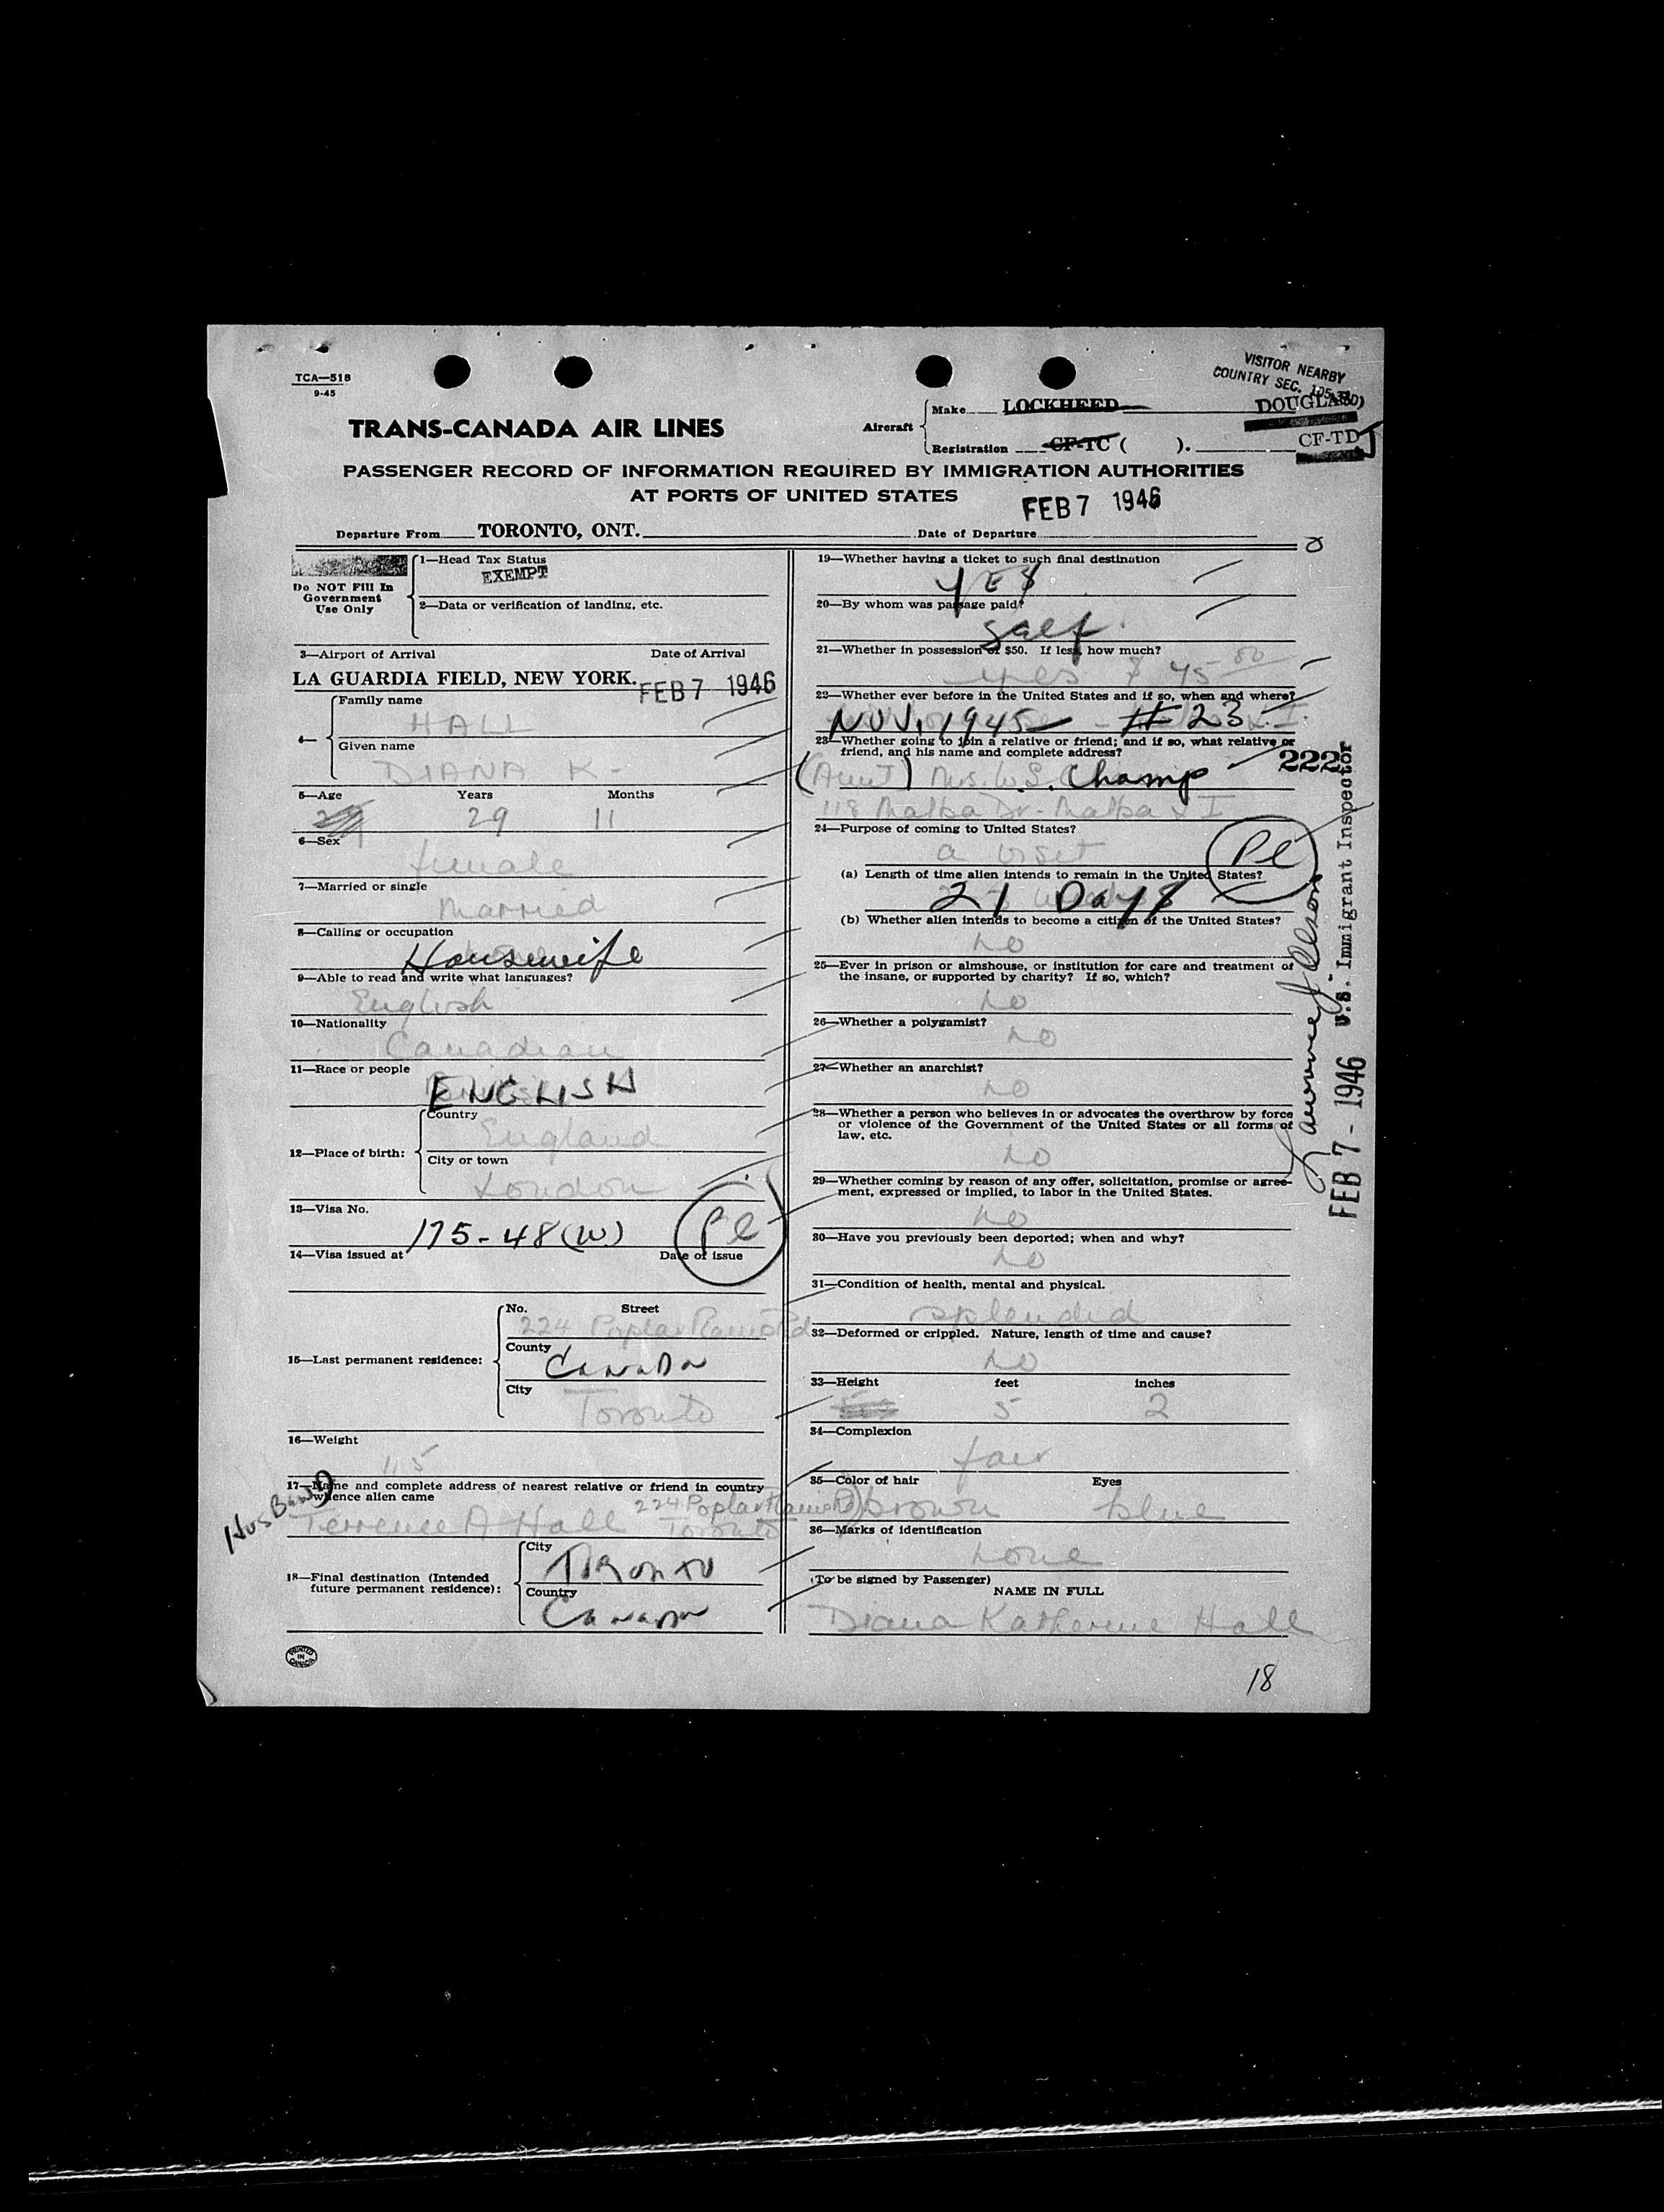 TCA—518
9-45
VISITOR NEARBY
COUNTRY SEC.
TRANS-CANADA AIR LINES
Aircraft
Make LOCKHEED DOUGLAS
Registration CF-TC ( ). CF-TD J
PASSENGER RECORD OF INFORMATION REQUIRED BY IMMIGRATION AUTHORITIES
AT PORTS OF UNITED STATES
FEB 7 1946
Departure From TORONTO, ONT. Date of Departure
Do NOT Fill In
Government
Use Only
1—Head Tax Status
EXEMPT
2—Data or verification of landing, etc.
3—Airport of Arrival Date of Arrival
LA GUARDIA FIELD, NEW YORK. FEB 7 1946
4—
Family name
HALL
Given name
DIANA K-
5—Age Years Months
29 11
6—Sex
female
7—Married or single
Married
8—Calling or occupation
Housewife
9—Able to read and write what languages?
English
10—Nationality
Canadian
11—Race or people
ENGLISH
12—Place of birth:
Country
England
City or town
London
13—Visa No.
175-48(W)
Pl
14—Visa issued at Date of issue
15—Last permanent residence:
No. Street
224 Poplar Plains Rd
County
Canada
City
Toronto
16—Weight
115
17—Name and complete address of nearest relative or friend in country
whence alien came
Husband
Terrence A Hall 224 Poplar Plains Rd
Toronto
18—Final destination (Intended
future permanent residence):
City
Toronto
Country
Canada
PRINTED
IN
CANADA
19—Whether having a ticket to such final destination
YES
20—By whom was passage paid?
Self.
21—Whether in possession of $50. If less, how much?
yes $ 45
22—Whether ever before in the United States and if so, when and where?
NOV. 1945 - # 23
23—Whether going to join a relative or friend; and if so, what relative or
friend, and his name and complete address?
222
(Aunt) Mrs. W. S. Champ
118 Malba Dr. - Malba L I
24—Purpose of coming to United States?
a visit
Pl
(a) Length of time alien intends to remain in the United States?
21 Days
(b) Whether alien intends to become a citizen of the United States?
no
25—Ever in prison or almshouse, or institution for care and treatment of
the insane, or supported by charity? If so, which?
no
26—Whether a polygamist?
no
27—Whether an anarchist?
no
28—Whether a person who believes in or advocates the overthrow by force
or violence of the Government of the United States or all forms of
law, etc.
no
29—Whether coming by reason of any offer, solicitation, promise or agree-
ment, expressed or implied, to labor in the United States.
no
30—Have you previously been deported; when and why?
no
31—Condition of health, mental and physical.
splendid
32—Deformed or crippled. Nature, length of time and cause?
no
33—Height feet inches
5 2
34—Complexion
fair
35—Color of hair Eyes
brown blue
36—Marks of identification
none
(To be signed by Passenger)
NAME IN FULL
Diana Katherine Hall
18
U.S. Immigrant Inspector
FEB 7 - 1946